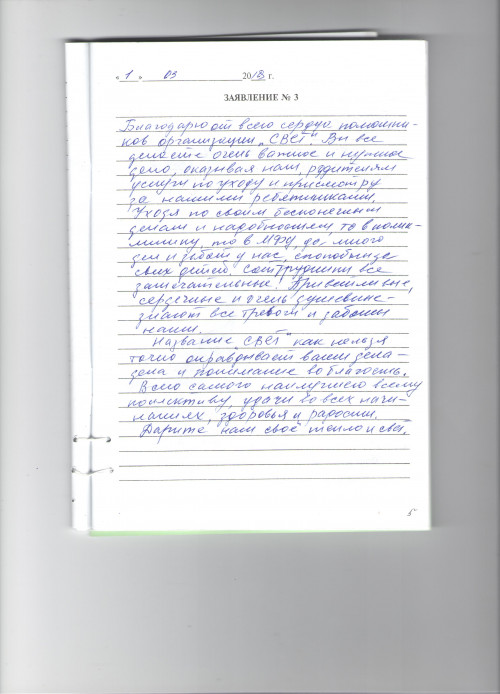 « 1 » 03 2018 г.
ЗАЯВЛЕНИЕ № 3
Благодарю от всего сердца помощни-
ков организации „СВЕТ". Вы все
делаете очень важное и нужное
дело, оказывая нам, родителям
услуги по уходу и присмотру
за нашими ребятишками.
Уходя по своим бесконечным
делам и надобностям, то в полик-
линику, то в МФЦ, да много
дел и забот у нас,
своих детей. Сотрудники все
замечательные! Приветливые,
сердечные и очень душевные-
знают все тревоги и заботы
наши.
Название „СВЕТ" как нельзя
точно оправдывает ваши дела-
дела и понимание во благость.
Всего самого наилучшего всему
коллективу, удачи во всех начи-
наниях, здоровья и радости.
Дарите нам своё тепло и свет.
5